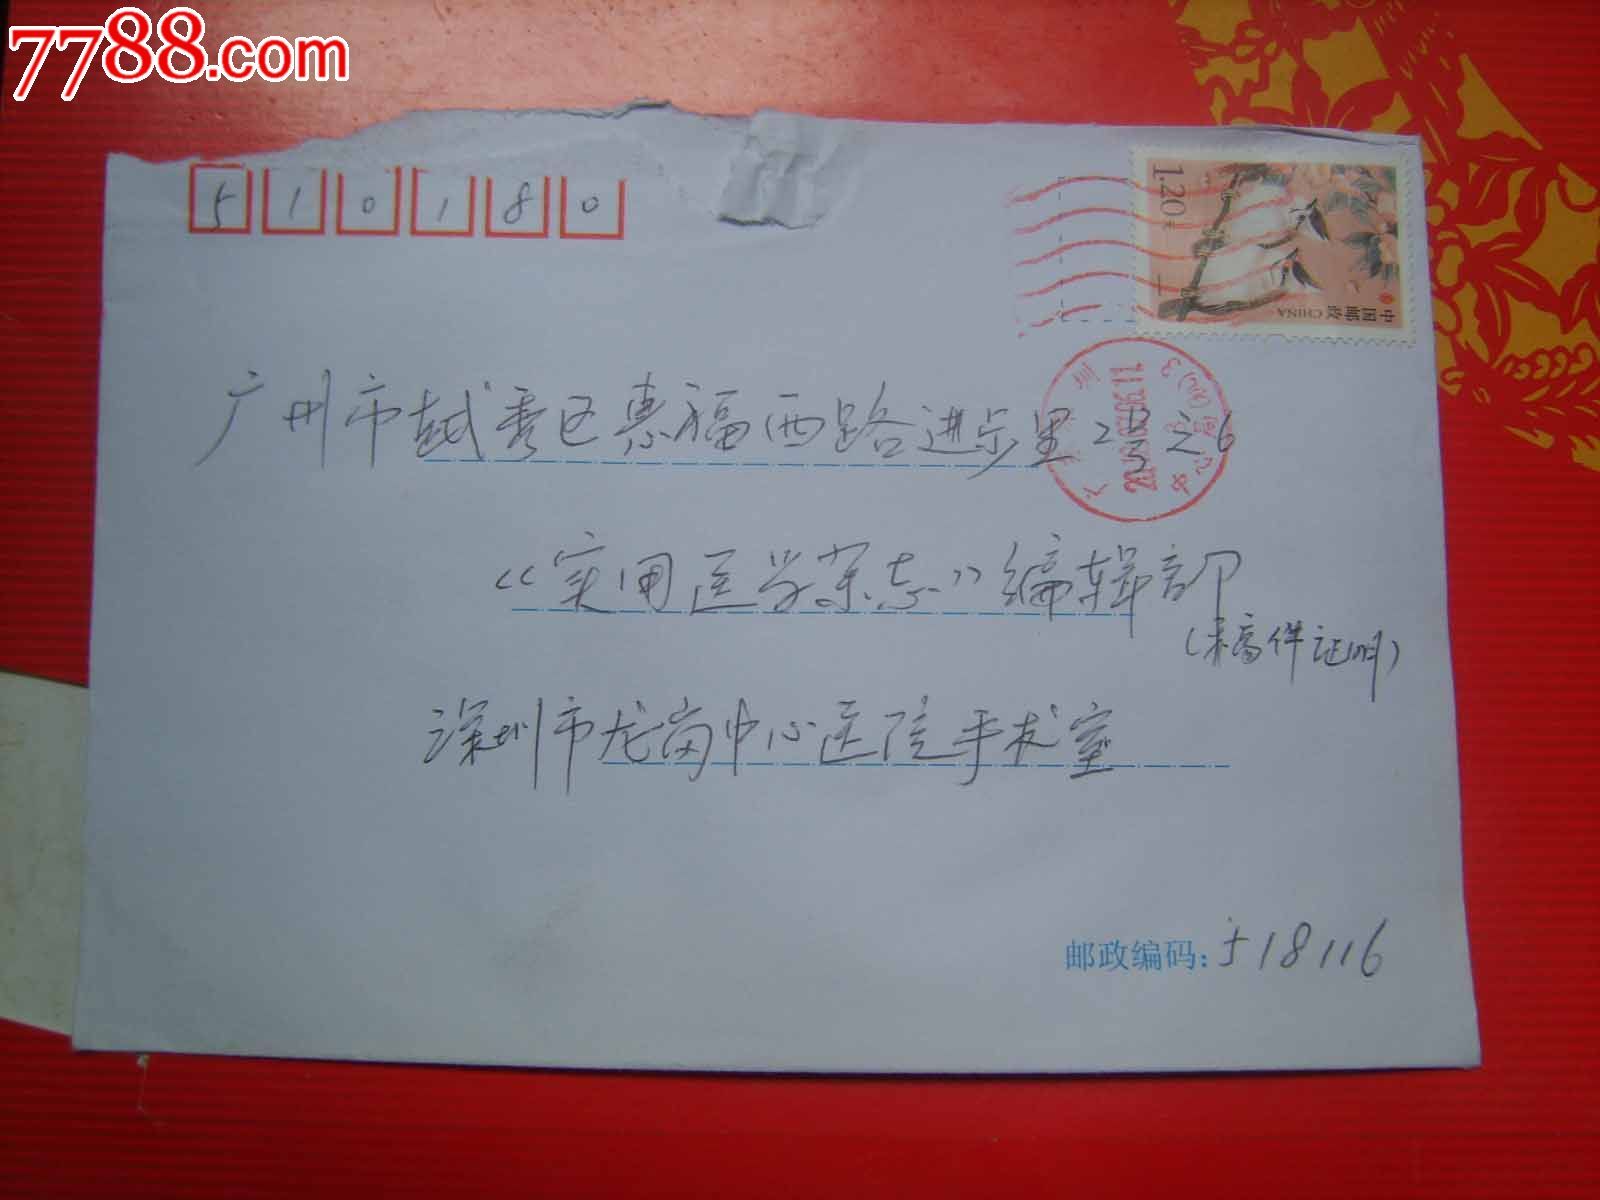 7788.com
510180
1.20元
中国邮政 CHINA
广州市越秀区惠福西路进步里2号之6
《实用医学杂志》编辑部
(来稿件证明)
深圳市龙岗中心医院手术室
邮政编码:518116